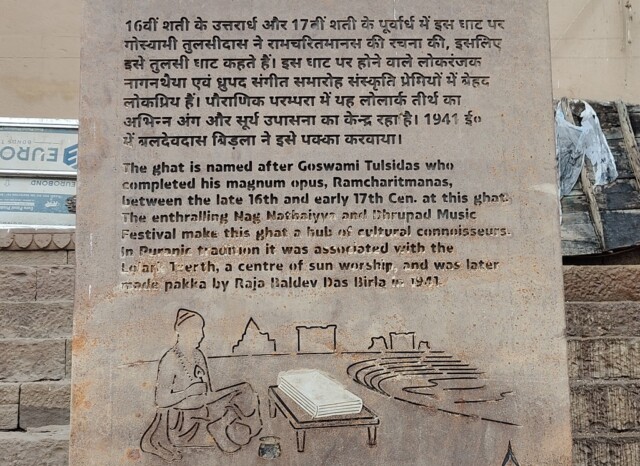 16वीं शती के उत्तरार्ध और 17वीं शती के पूर्वार्ध में इस घाट पर
गोस्वामी तुलसीदास ने रामचरितमानस की रचना की, इसलिए
इसे तुलसी घाट कहते हैं। इस घाट पर होने वाले लोकरंजक
नागनथैया एवं ध्रुपद संगीत समारोह संस्कृति प्रेमियों में बेहद
लोकप्रिय हैं। पौराणिक परम्परा में यह लोलार्क तीर्थ का
अभिन्न अंग और सूर्य उपासना का केन्द्र रहा है। 1941 ई०
में बलदेवदास बिड़ला ने इसे पक्का करवाया।
The ghat is named after Goswami Tulsidas who
completed his magnum opus, Ramcharitmanas,
between the late 16th and early 17th Cen. at this ghat.
The enthralling Nag Nathaiyya and Dhrupad Music
Festival make this ghat a hub of cultural connoisseurs.
In Puranic tradition it was associated with the
Lolark Teerth, a centre of sun worship, and was later
made pakka by Raja Baldev Das Birla in 1941.
EURO
EUROBOND